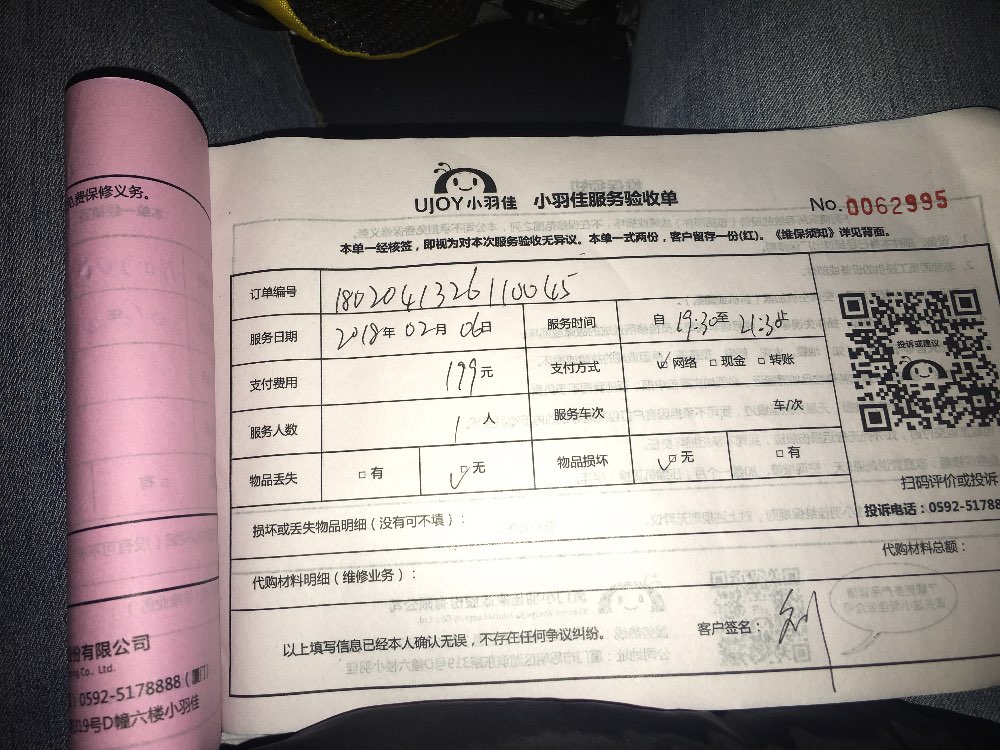 免费保修义务。
UJOY小羽佳 小羽佳服务验收单
No.0062995
本单一经核签，即视为对本次服务验收无异议。本单一式两份，客户留存一份(红)。《维保须知》详见背面。
订单编号 1802041326110045
服务日期 2018年 02月 06日 服务时间 自 19:30至 21:30止
支付费用 199元 支付方式 ☑网络 □现金 □转账
投诉或建议
服务人数 1 人 服务车次 车/次
物品丢失 □有 ☑无 物品损坏 ☑无 □有
扫码评价或投诉
投诉电话：0592-51788
损坏或丢失物品明细（没有可不填）：
代购材料总额：
代购材料明细（维修业务）：
以上填写信息已经本人确认无误，不存在任何争议纠纷。
客户签名：
份有限公司
ng Co., Ltd.
0592-5178888（厦门）
319号D幢六楼小羽佳